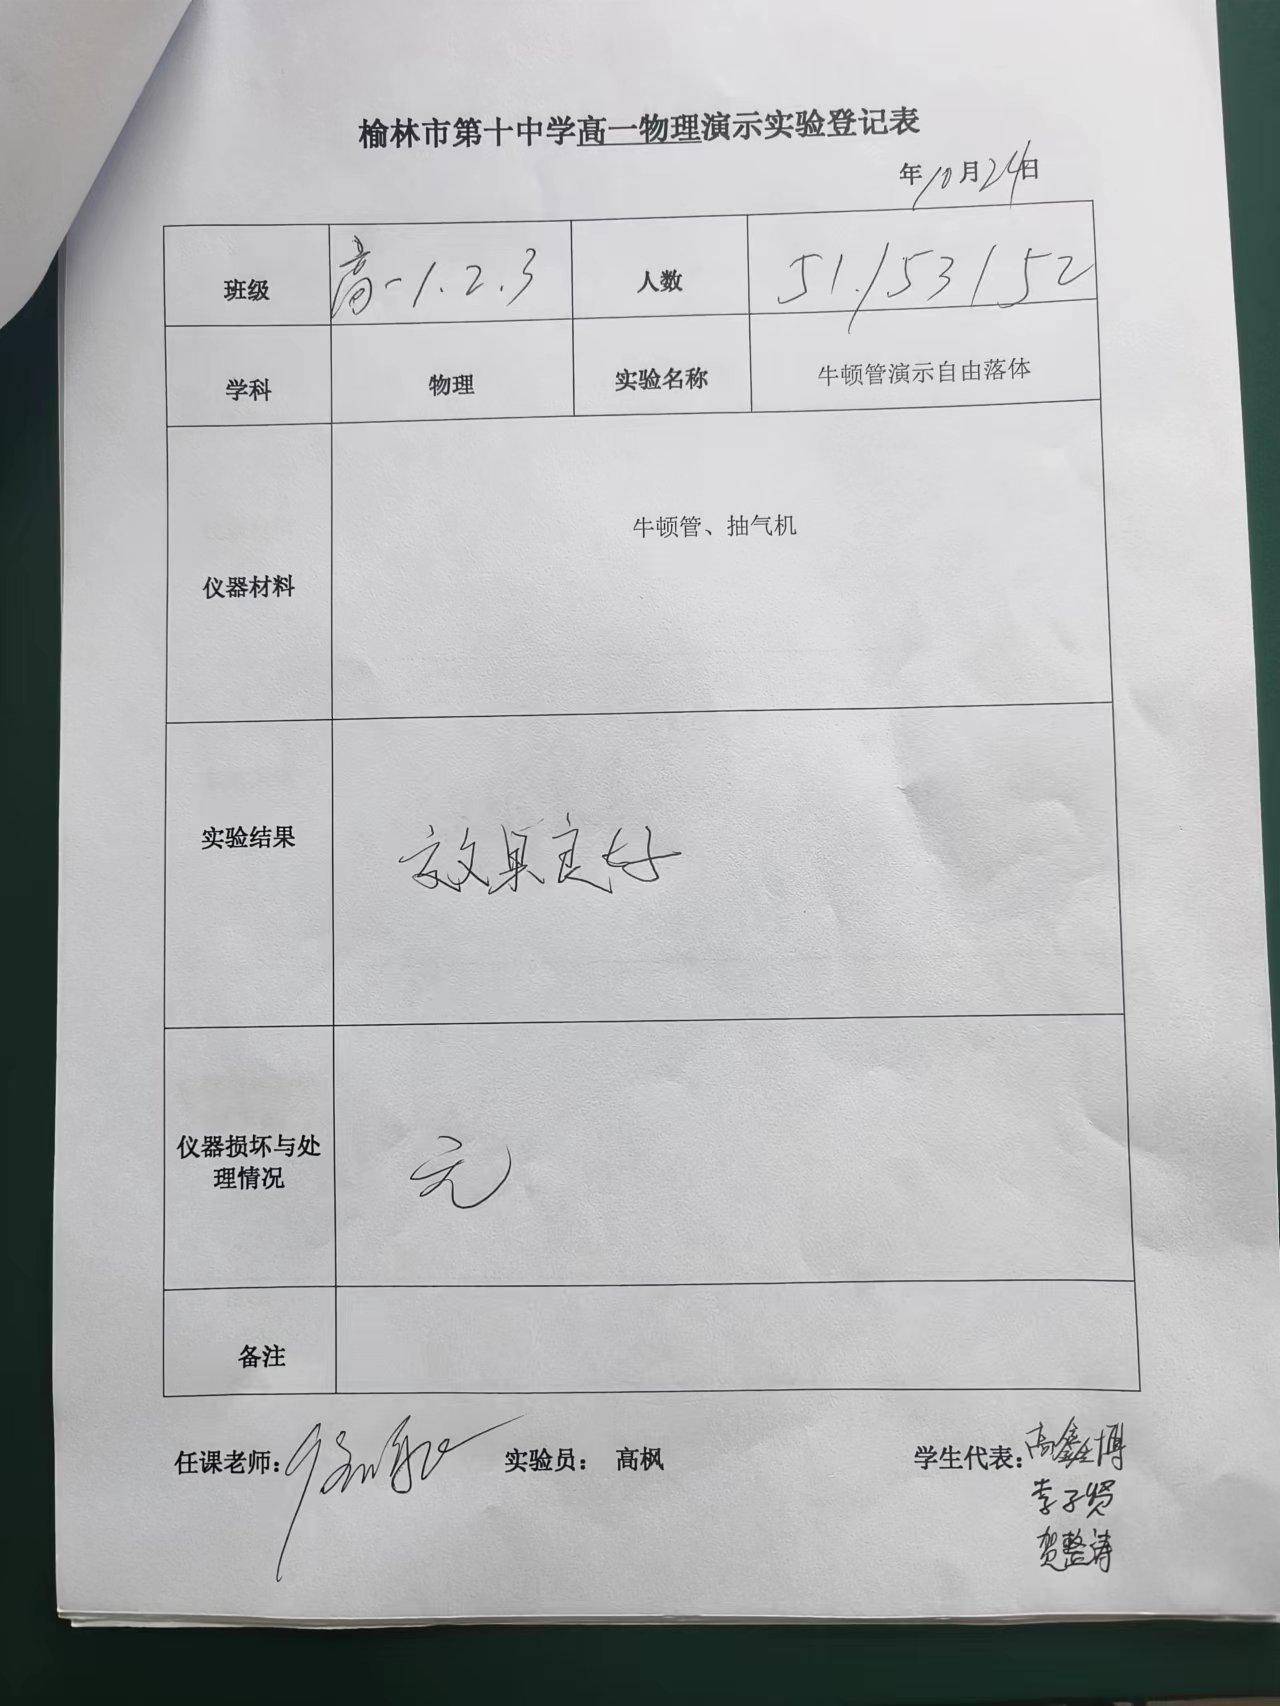 榆林市第十中学高一物理演示实验登记表
年10月24日
班级 高一1.2.3 人数 51/53/52
学科 物理 实验名称 牛顿管演示自由落体
仪器材料 牛顿管、抽气机
实验结果 效果良好
仪器损坏与处理情况 无
备注
任课老师: 实验员： 高枫 学生代表: 高鑫博
李子贤
贺整涛